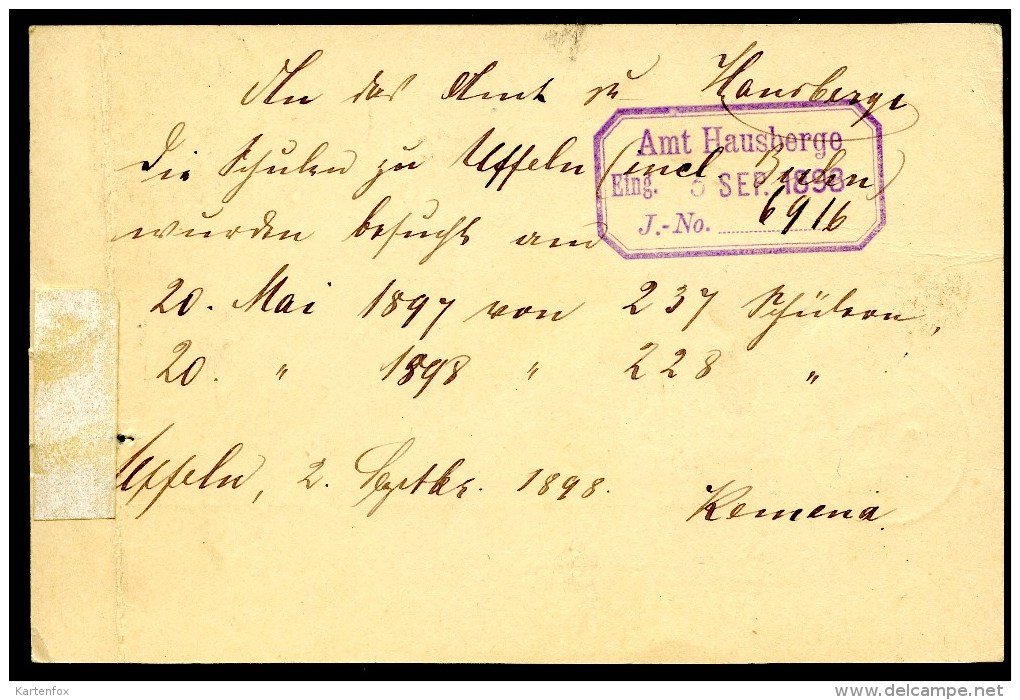 An das Amt zu Hausberge
Amt Hausberge
Die Schulen zu Uffeln (incl Buhn)
Eing. 5 SEP. 1898
wurden besucht am
J.-No. 6916
20. Mai 1897 von 237 Schülern,
20. " 1898 " 228 "
Uffeln, 2. Septbr. 1898.
Remena
Kartenfox
www.delcampe.net